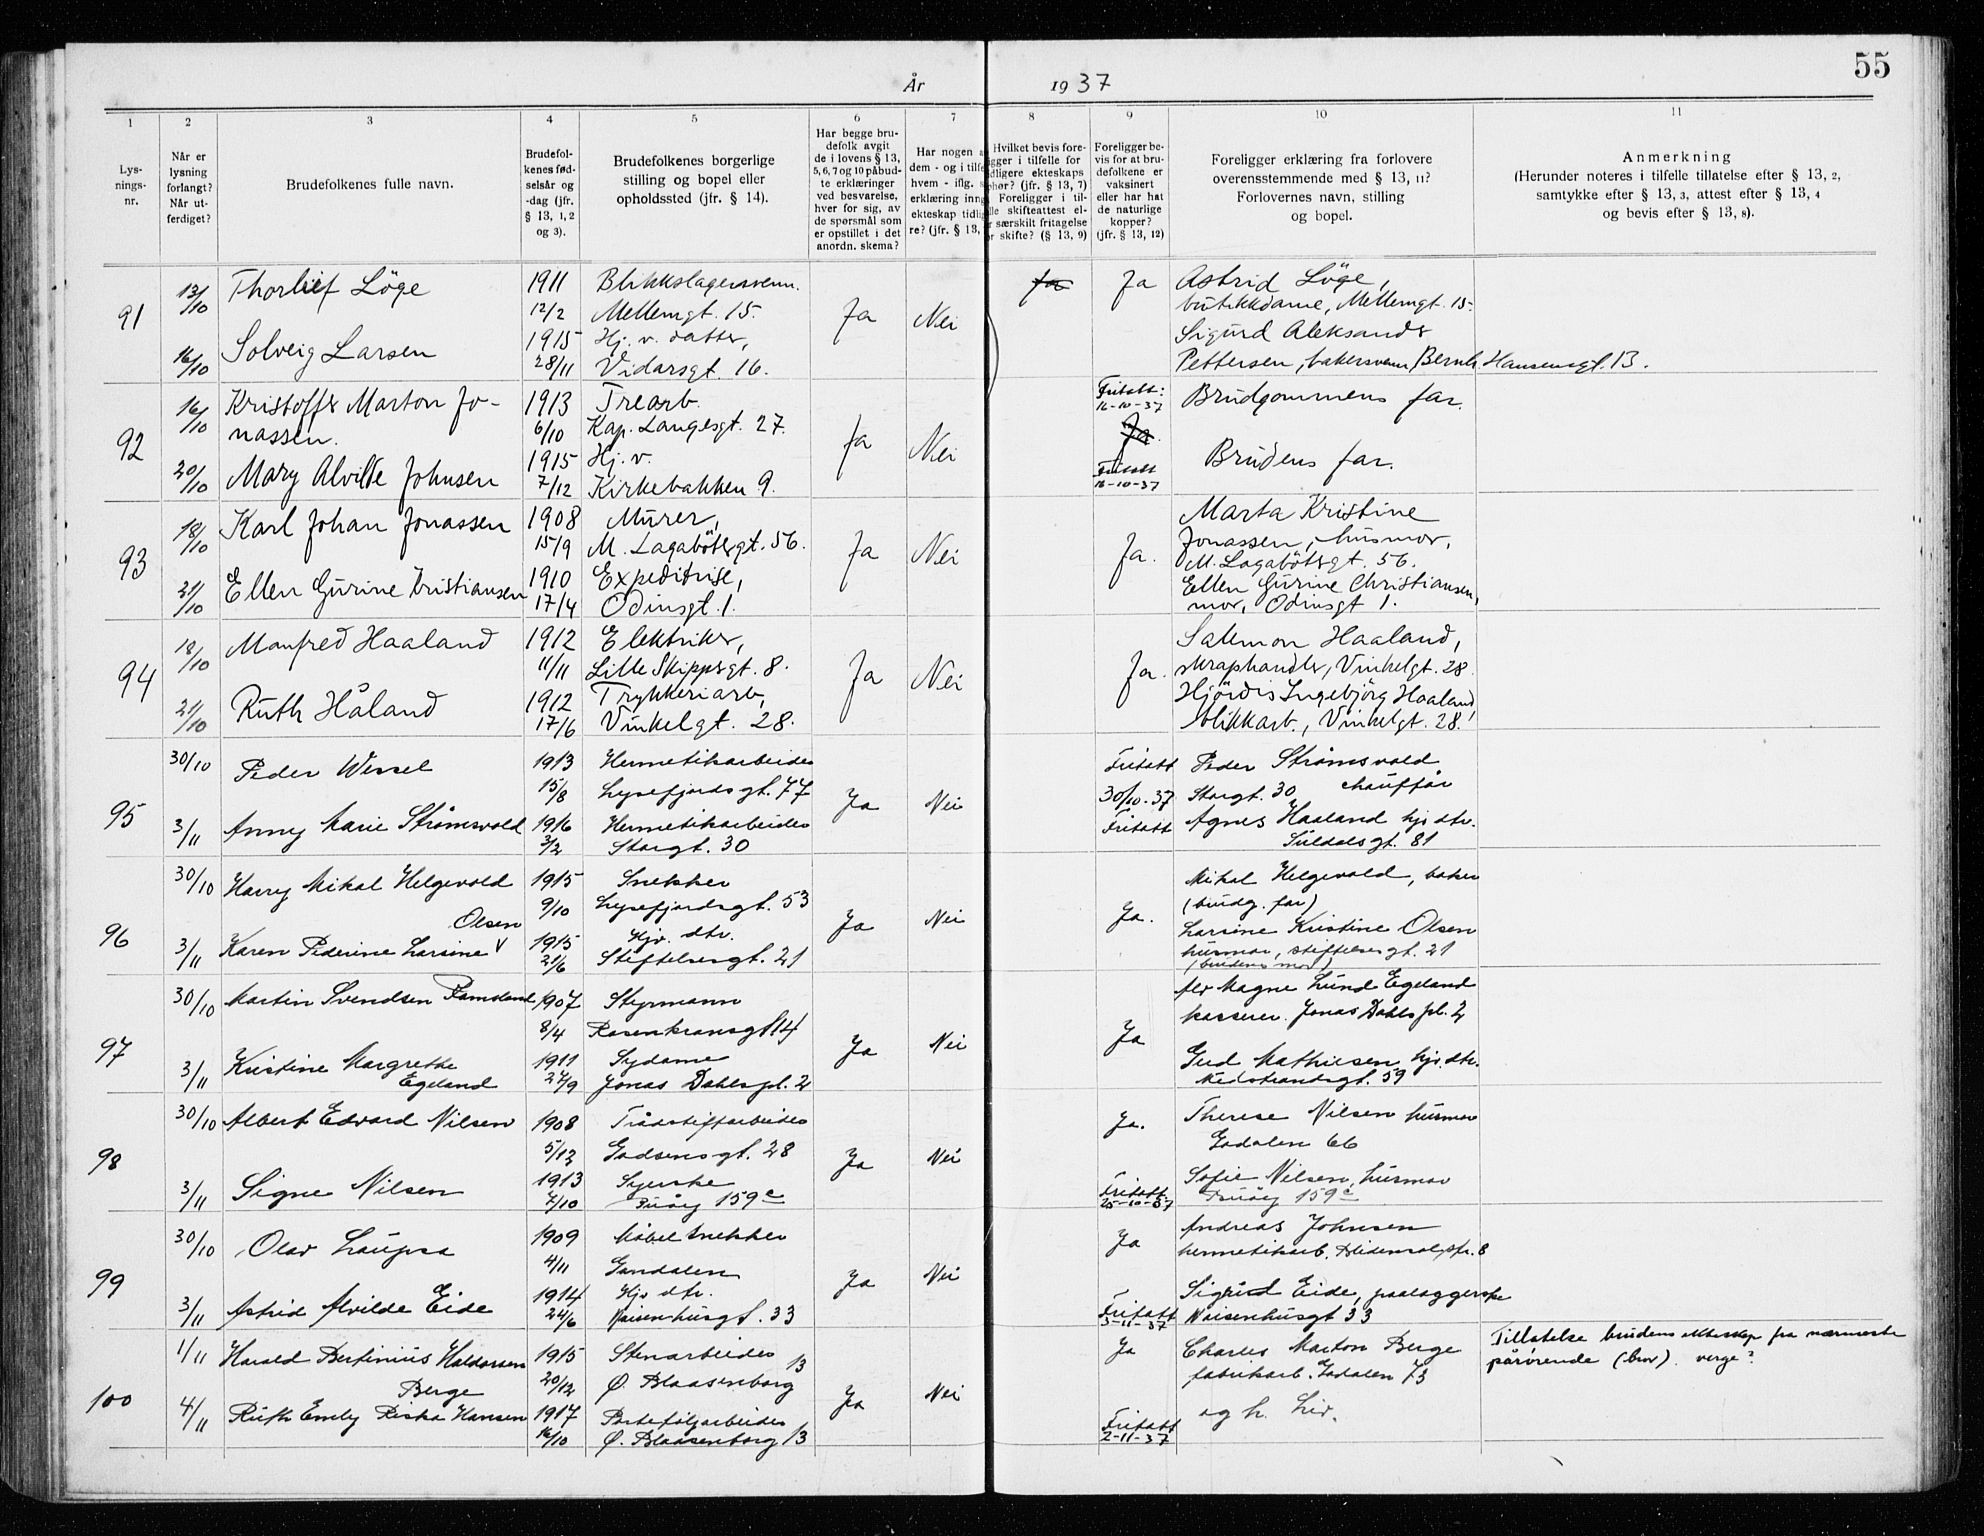 55
År 1937
1 2 3 4 5 6 7 8 9 10 11
Lys-
nings-
nr.
Når er
lysning
forlangt?
Når ut-
ferdiget?
Brudefolkenes fulle navn.
Brudefol-
kenes fød-
selsår og
-dag (jfr.
§ 13, 1, 2
og 3).
Brudefolkenes borgerlige
stilling og bopel eller
opholdssted (jfr. § 14).
Har begge bru-
defolk avgit
de i lovens § 13,
5, 6, 7 og 10 påbud-
te erklæringer
ved besvarelse,
hver for sig, av
de spørsmål som
er opstillet i det
anordn. skema?
Har nogen
dem - og i tilf
hvem - iflg.
erklæring inng
ekteskap tidlig
re? (jfr. § 13,
Hvilket bevis fore-
igger i tilfelle for
dligere ekteskaps
phør? (jfr. § 13, 7)
Foreligger i til-
lle skifteattest el-
r særskilt fritagelse
or skifte? (§ 13, 9)
Foreligger be-
vis for at bru-
defolkene er
vaksinert
eller har hat
de naturlige
kopper?
(jfr. § 13, 12)
Foreligger erklæring fra forlovere
overensstemmende med § 13, 11?
Forlovernes navn, stilling
og bopel.
Anmerkning
(Herunder noteres i tilfelle tillatelse efter § 13, 2,
samtykke efter § 13, 3, attest efter § 13, 4
og bevis efter § 13, 8).
91
13/10 Thorlief Löge 1911 Blikkslagersvenn.
12/2 Mellemgt. 15.
16/10 Solveig Larsen 1915 Hj. v. datter,
28/11 Vidarsgt. 16.
Ja Nei Ja Ja
Astrid Löge,
butikkdame, Mellemgt. 15.
Sigurd Aleksander
Pettersen, bakersvenn, Bernh. Hansensgt. 13.
92
16/10 Kristoffer Marton Jo-
nassen.
1913 Trearb.
6/10 Kap. Langesgt. 27.
20/10 Mary Alvilde Johnsen 1915 Hj. v.
7/12 Kirkebakken 9.
Ja Nei
Fritatt:
16-10-37
Ja.
Fritatt
16-10-37
Brudgommens far.
Brudens far.
93
18/10 Karl Johan Jonassen 1908 Murer,
15/9 M. Lagabötersgt. 56.
21/10 Ellen Gurine Kristiansen 1910 Expeditrise,
17/4 Odinsgt. 1.
Ja Nei Ja.
Marta Kristine
Jonassen, husmor,
M. Lagabötsgt. 56.
Ellen Gurine Christiansen,
mor, Odinsgt 1.
94
18/10 Manfred Haaland 1912 Elektriker,
11/11 Lille Skippergt. 8.
21/10 Ruth Håland 1912 Trykkeriarb,
17/6 Vinkelgt. 28.
Ja Nei Ja.
Salemon Haaland,
skraphandler, Vinkelgt. 28.
Hjördis Ingebjörg Haaland
blikkarb., Vinkelgt. 28.
95
30/10 Peder Wessel 1913 Hermetikarbeider
15/8 Lysefjordsgt. 77
3/11 Anny Marie Strømsvold 1916 Hermetikarbeider
3/2 Storgt. 30
Ja Nei
Fritatt
30/10-37
Fritatt
Peder Strømsvold
Storgt. 30 chauffør
Agnes Haaland hjv dtr.
Suldalsgt. 81
96
30/10 Harry Mikal Helgevold 1915 Snekker
9/10 Lysefjordsgt. 53
Olsen
3/11 Karen Pederine Larsine 1915 Hjv. dtr.
21/6 Stiftelsesgt. 21
Ja Nei Ja.
Mikal Helgevold, baker
(brudg. far)
Larsine Kristine Olsen
husmor, Stiftelsesgt. 21
(brudens mor)
97
30/10 Martin Svendsen Ramsland 1907 Styrmann
8/4 Rosenkransgt 14
3/11 Kristine Margrethe
Egeland
1911 Sydame
27/9 Jonas Dahls pl. 2
Ja Nei Ja
Magne Lund Egeland
kasserer. Jonas Dahls pl. 2
Gud Mathiesen, hjv. dtr.
Midstrandsgt. 59
98
30/10 Albert Edvard Nilsen 1908 Trådstiftarbeider
5/12 Godsensgt. 28
3/11 Signe Nilsen 1913 Syerske
7/10 Buøy 159c
Ja Nei Ja.
Fritatt
25-10-37
Therese Nilsen husmor
Godalen 66
Sofie Nilsen, husmor
Buøy 159c
99
30/10 Olav Laupsa 1909 Møbelsnekker
4/11 Gandalen
3/11 Astrid Alvilde Eide 1914 Hjv dtr.
24/6 Vaisenhusgt. 33
Ja Nei Ja
Fritatt
3-11-37
Andreas Johnsen
hermetikarb.
Sigurd Eide,
Vaisenhusgt 33
100
1/11 Harald Bertinius Haldorsen
Berge
1915 Stenarbeider
20/12 Ø. Blaasenborg 13
4/11 Ruth Emely Riska Hansen 1917 Porteføljarbeider
16/10 Ø. Blaasenborg 13
Ja Nei Ja
Fritatt
2-11-37
Charles Marton Berge
fabrikarb. Godalen 73
og h. Liv.
Tillatelse brudens ekteskap fra nærmeste
pårørende (bror). verge?